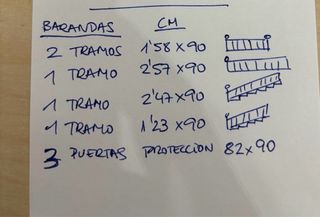 BARANDAS CM
2 TRAMOS 1'58 x 90
1 TRAMO 2'57 x 90
1 TRAMO 2'47 x 90
1 TRAMO 1'23 x 90
3 PUERTAS PROTECCION 82 x 90